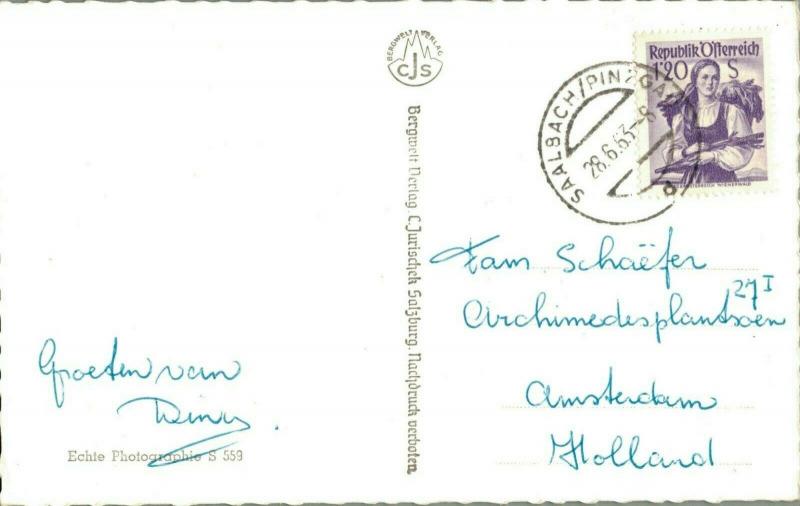 BERGWELT VERLAG
CJS
Republik Österreich
1'20 S
SAALBACH/PINZGAU
28.6.63-8
Bergwelt Verlag C.Jurischek Salzburg. Nachdruck verboten
Fam Schaëfer
27 I
Archimedesplantsoen
Amsterdam
Holland
Groeten van
Echte Photographie S 559